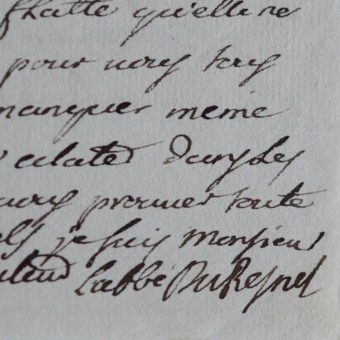 flatte qu'elle ne
pour vous tous
manquer meme
eclater dans les
vous prouver toute
je suis Monsieur
l'abbé Du Resnel